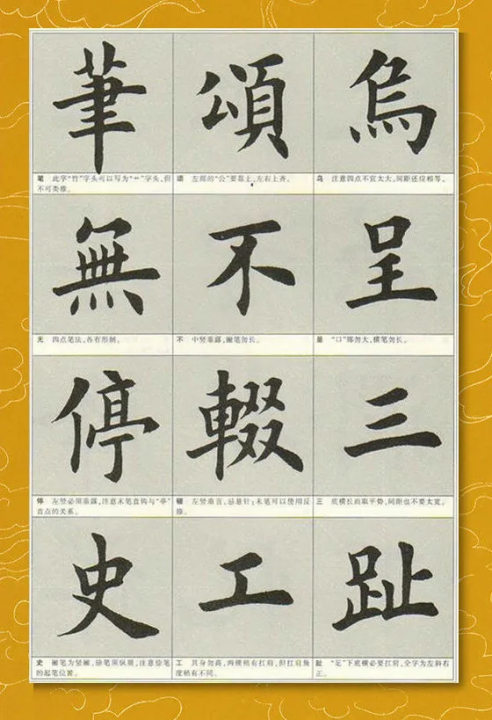 烏
乌 注意四点不宜太大,间距还应相等。
呈
呈 "口"部勿大,横笔勿长。
三
三 底横长而取平势,间距也不要太宽。
趾
趾 "足"下底横必要扛肩,全字为左斜右
正。
頌
颂 左部的"公"要靠上,左右上齐。
不
不 中竖垂露,撇笔勿长。
輟
辍 左竖垂直,忌悬针;末笔可以使用反
捺。
工
工 其身勿高,两横稍有扛肩,但扛肩角
度稍有不同。
筆
笔 此字"竹"字头可以写为"艹"字头,但
不可类推。
無
无 四点笔法,各有形制。
停
停 左竖必须垂露,注意末笔直钩与"亭"
首点的关系。
史
史 撇笔为竖撇,捺笔须纵展,注意捺笔
的起笔位置。